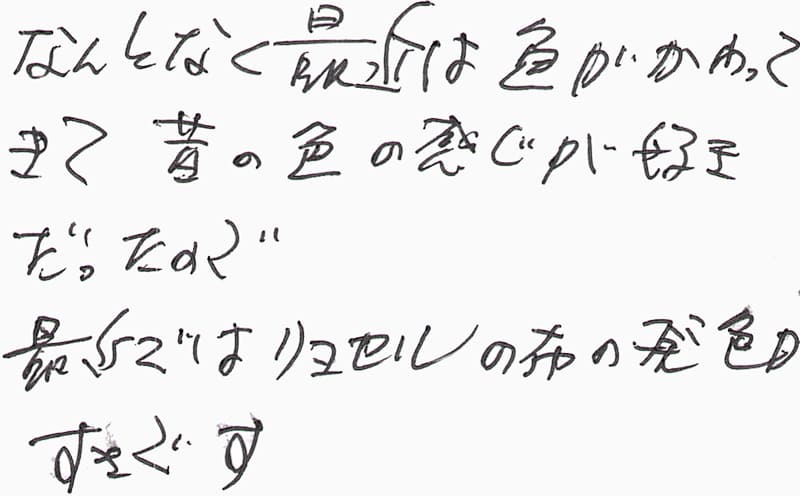 なんとなく最近は色がかわって
きて昔の色の感じが好き
だったので
最近ではリヨセルの布の発色が
すきです